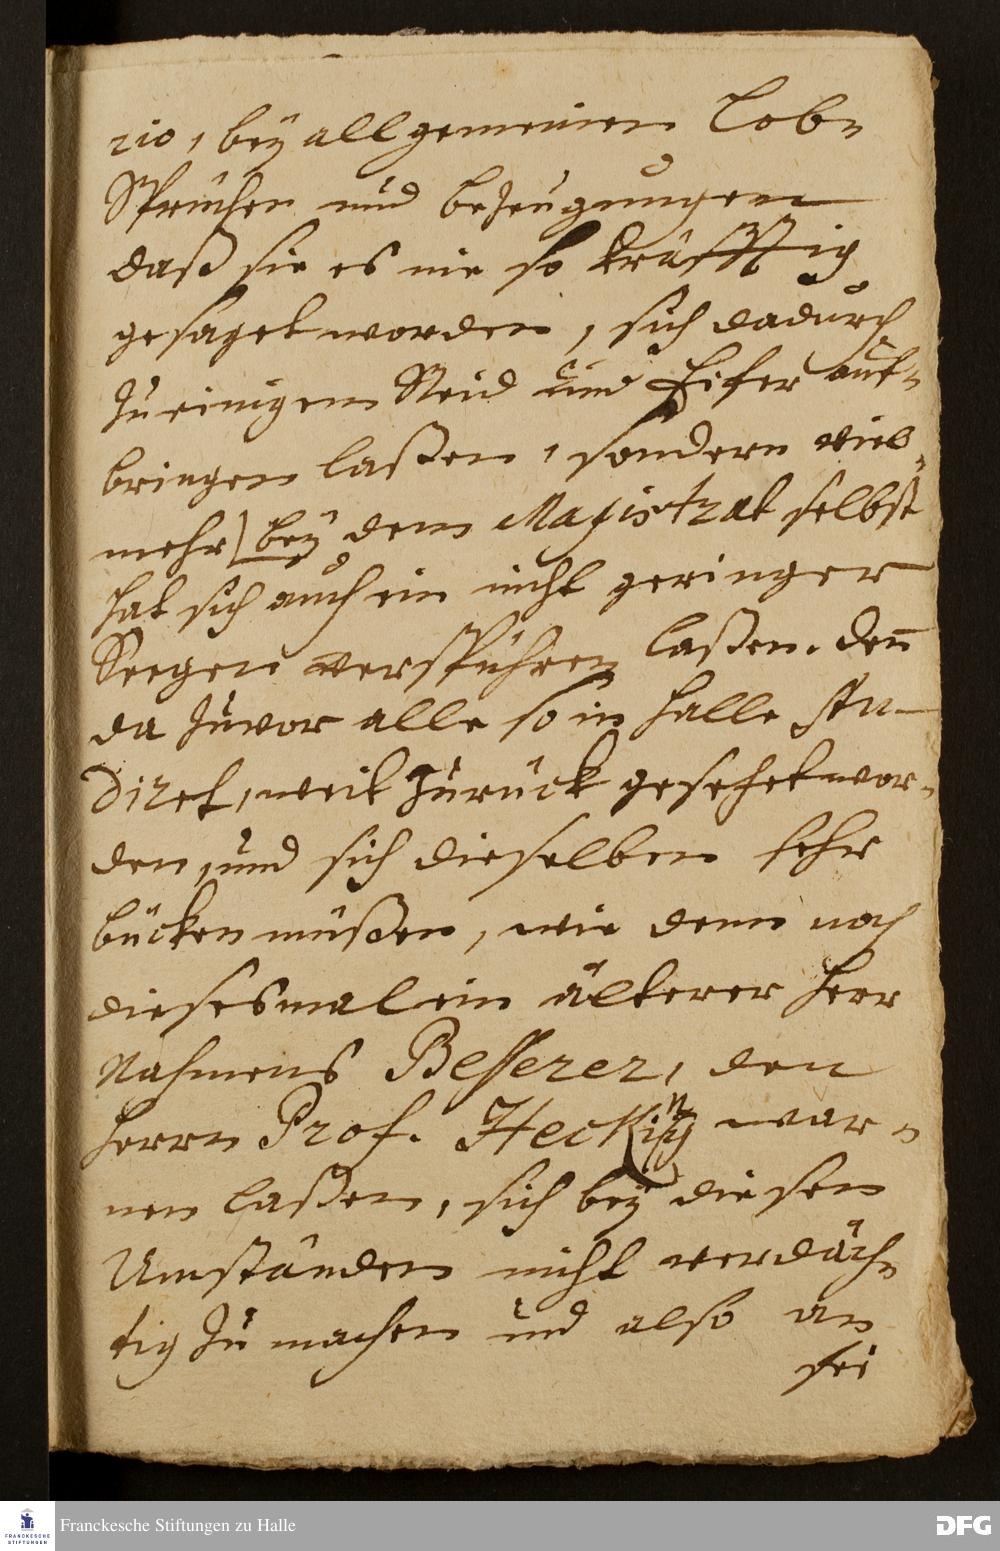 rio, bey allgemeinen Lob-
Sprüchen und bezeugungen
daß sie es nie so kräfftig
gesaget worden, sich dadurch
zu einigem Neid und Eifer auf-
bringen laßen, sondern viel-
mehr] bey dem Magistrat selbst
hat sich auch ein nicht geringer
Seegen verspühren laßen. denn
da zuvor alle so in Halle stu-
diret, weit zurück gesetzet wor-
den, und sich dieselben sehr
bücken müßen, wie denn noch
diesesmal ein älterer Herr
Nahmens Besserer, den
Herrn Prof. Hecking war-
nen laßen, sich bey diesen
Umständen nicht verdäch-
tig zu machen und also an
sei
Franckesche Stiftungen zu Halle
FRANCKESCHE
STIFTUNGEN
DFG